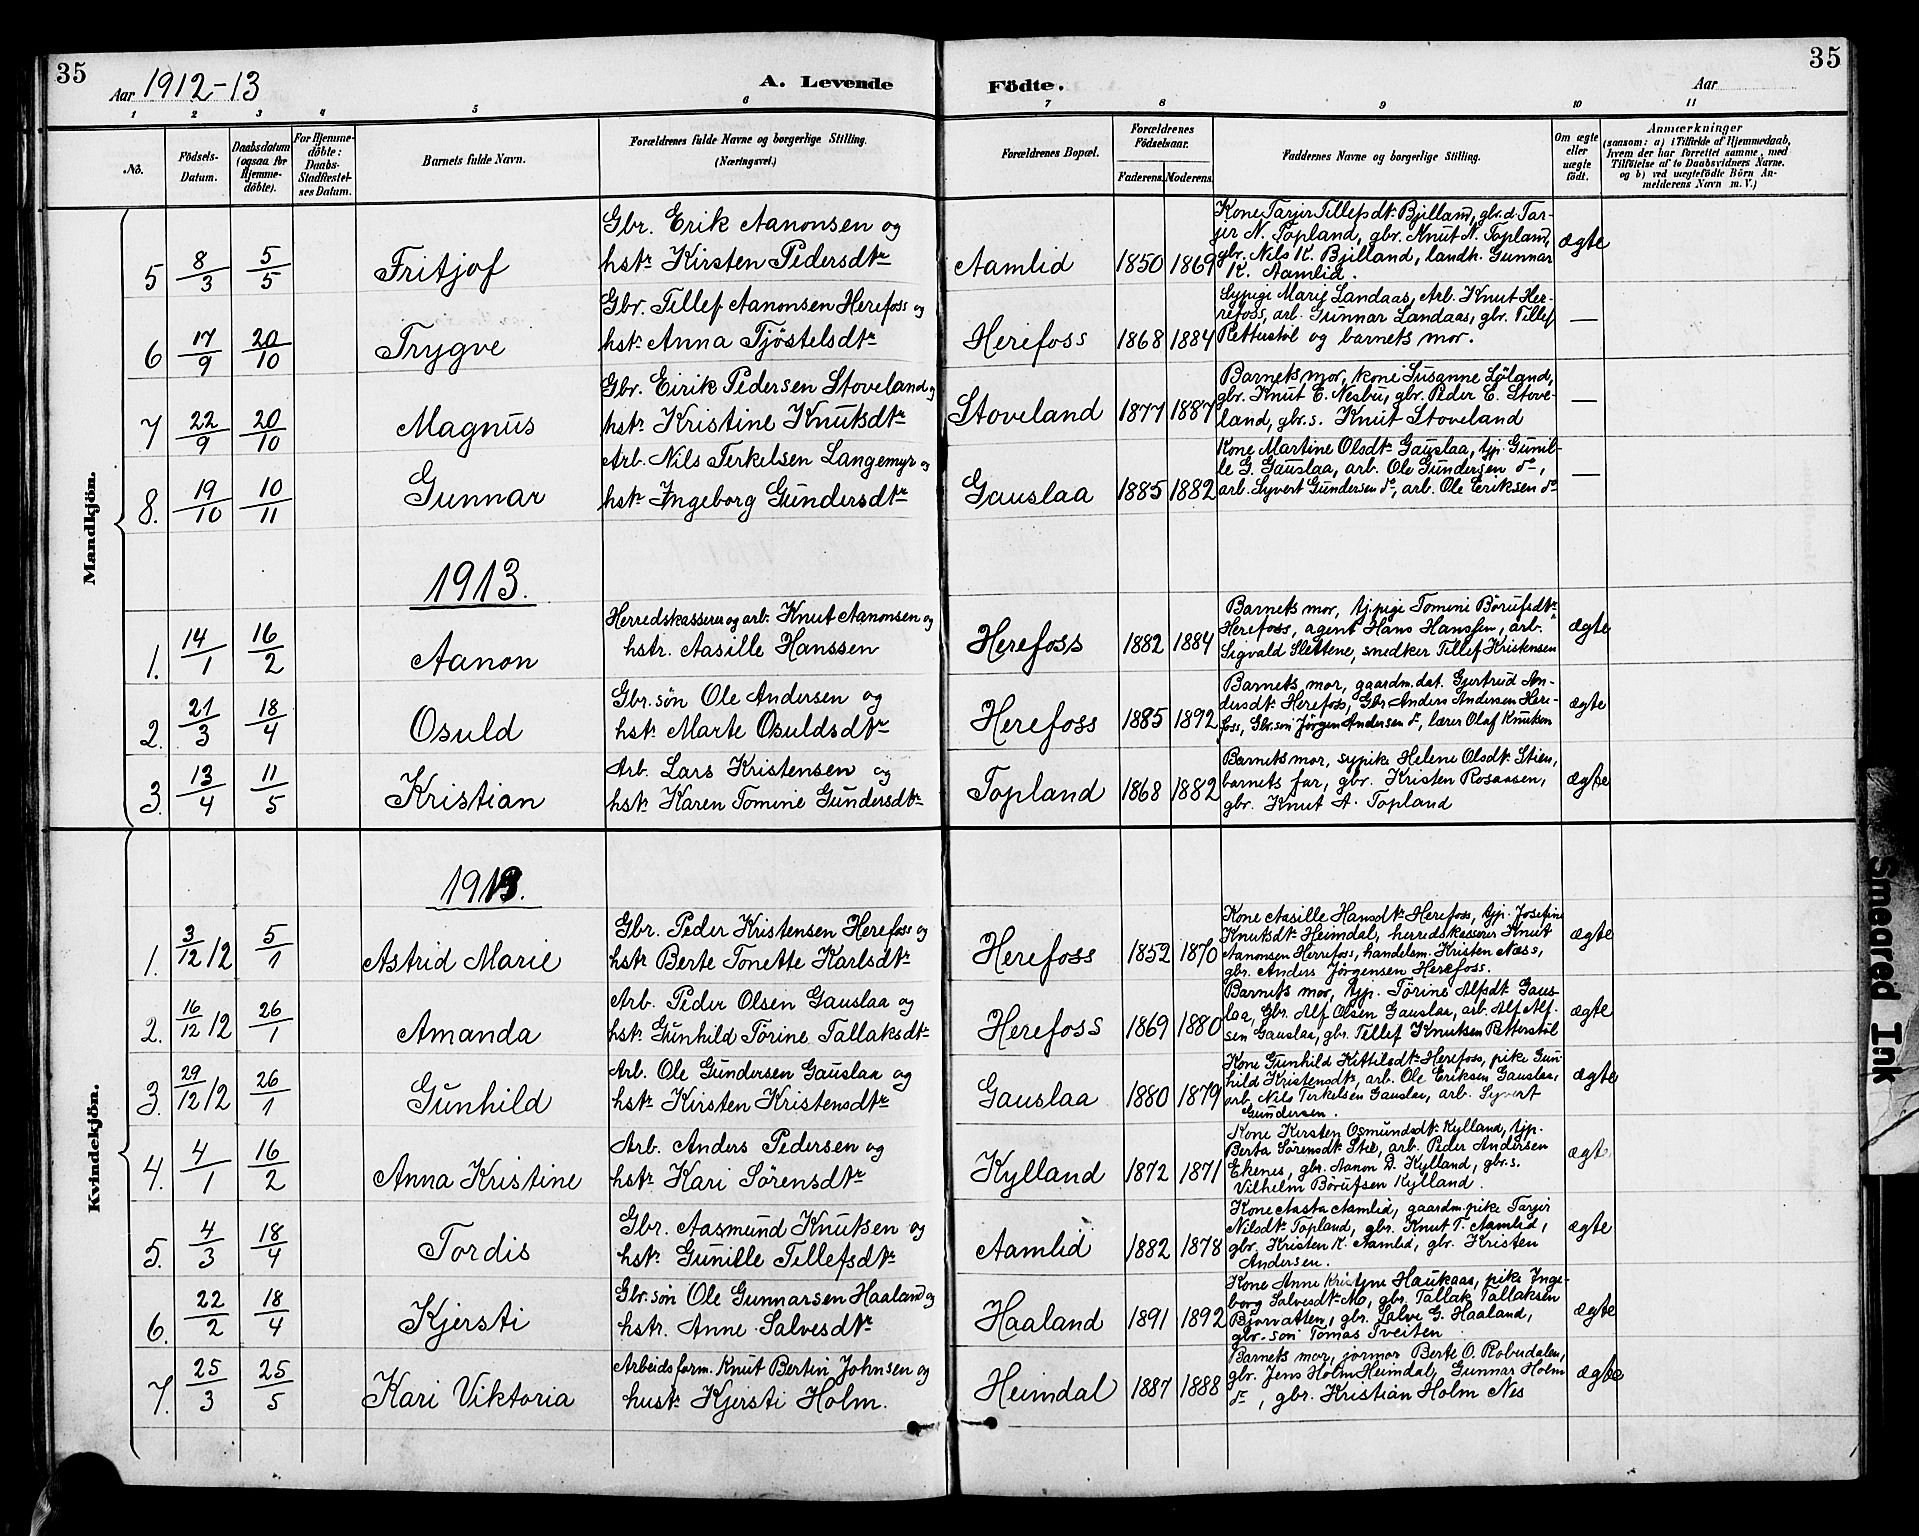 35
35
Aar 1912-13
A. Levende
Födte.
Aar
1 2 3 4 5 6 7 8 9 10 11
No.
Födsels-Datum.
Daabsdatum (ogsaa for Hjemmedöbte).
For Hjemmedöbte: Daabs-Stadfæstelses Datum.
Barnets fulde Navn.
Forældrenes fulde Navne og borgerlige Stilling. (Næringsvei.)
Forældrenes Bopæl.
Forældrenes Födselsaar. Faderens. Moderens.
Faddernes Navne og borgerlige Stilling.
Om ægte eller uægte födt.
Anmærkninger
(saasom: a) i Tilfælde af Hjemmedaab,
hvem der har forrettet samme, med
Tilföielse af to Daabsvidners Navne.
og b) ved uægtefödte Börn Anmelderens Navn m. V.)
Mandkjön.
5 8/3 5/5 Fritjof
Gbr. Erik Aanonsen og
hstr Kirsten Pedersdtr
Aamlid 1850 1869
Kone Tarjer Tellefsdtr Bjilland, gbr.d. Tar-
jer N. Topland, gbr. Knut N. Topland,
gbr. Nils K. Bjilland, landh. Gunnar
K. Aamlid.
ægte
6 17/9 20/10 Trygve
Gbr. Tellef Aanonsen Herefoss og
hstr Anna Tjöstelsdtr
Herefoss 1868 1884
Sypige Marie Landaas, Arb. Knut Her-
refoss, arb. Gunnar Landaas, gbr. Tellef
Retterstöl og barnets mor.
—
7 22/9 20/10 Magnus
Gbr. Eirik Pedersen Stoveland og
hstr Kristine Knutsdtr
Stoveland 1877 1887
Barnets mor, kone Susanne Löland,
gbr. Knut E. Nesbu, gbr. Peder E. Stove-
land, gbr.s. Knut Stoveland
—
8. 19/10 10/11 Gunnar
Arb. Nils Terkelsen Langemyr og
hstr Ingeborg Gundersdtr
Gauslaa 1885 1882
Kone Martine Olsdtr Gauslaa, tjp. Gunil-
le G. Gauslaa, arb. Ole Gundersen do,
arb. Syvert Gundersen do, arb. Ole Eriksen do
—
1913.
1. 14/1 16/2 Aanon
Herredskasserer og arb. Knut Aanonsen og
hstr. Aasille Hanssen
Herefoss 1882 1884
Barnets mor, tjpige Tomine Börufsdtr
Herefoss, agent Hans Hanssen, arb.
Sigvald Slettene, snedker Tellef Kristensen
ægte
2. 21/3 18/4 Osuld
Gbr.sön Ole Andersen og
hstr Marte Osuldsdtr
Herefoss 1885 1892
Barnets mor, gaardm.dat. Gjertrud An-
dersdtr Herefoss, Gbr Anders Andersen Here-
foss, Gbr.sön Jörgen Andersen do, lærer Olaf Knutsen
ægte
3. 13/4 11/5 Kristian
Arb. Lars Kristensen og
hstr Karen Tomine Gundersdtr
Topland 1868 1882
Barnets mor, sypike Helene Olsdtr Stien,
barnets far, gbr. Kristen Rosaasen,
gbr. Knut A. Topland
ægte
Kvindekjön.
1913.
1. 3/12 12 5/1 Astrid Marie
Gbr. Peder Kristensen Herefoss og
hstr Berte Tonette Karlsdtr
Herefoss 1852 1870
Kone Aasille Hansdtr Herefoss, tjp. Josefine
Knutsdtr Heimdal, herredskasserer Knut
Aanonsen Herrefoss, handelsm. Kristen Næss,
gbr. Anders Jörgensen Herefoss.
ægte
2. 16/12 12 26/1 Amanda
Arb. Peder Olsen Gauslaa og
hstr Gunhild Törine Tallaksdtr
Herefoss 1869 1880
Barnets mor, tjp. Törine Alfsdtr Gaus-
laa, Gbr. Alf Olsen Gauslaa, arb. Alf Alf-
sen Gauslaa, gbr. Tellef Knutsen Retterstöl
ægte
3. 29/12 12 26/1 Gunhild
Arb. Ole Gundersen Gauslaa og
hstr Kirsten Kristensdtr
Gauslaa 1880 1879
Kone Gunhild Kittilsdtr Herefoss, pike Gun-
hild Kristensdtr, arb. Ole Eriksen Gauslaa,
arb. Nils Terkelsen Gauslaa, arb. Syvert
Gundersen.
ægte
4. 4/1 16/2 Anna Kristine
Arb. Anders Pedersen og
hstr Kari Sörensdtr
Kylland 1872 1871
Kone Kirsten Osmundsdtr Kylland, tjp.
Berta Sörensdtr Stie, arb. Peder Andersen
Ekenes, gbr. Aanon D. Kylland, gbr.s.
Vilhelm Börufsen Kylland.
ægte
5. 4/3 18/4 Tordis
Gbr. Aasmund Knutsen og
hstr Gunille Tellefsdtr
Aamlid 1882 1878
Kone Aasta Aamlid, gaardm.pike Tarjer
Nilsdtr Topland, gbr. Knut T. Aamlid,
gbr. Kristen K. Aamlid, gbr. Kristen
Andersen.
ægte
6. 22/2 18/4 Kjersti
Gbr.sön Ole Gunnarsen Haaland og
hstr. Anne Salvesdtr
Haaland 1891 1892
Kone Anne Kristine Haukaas, pike Inge-
borg Salvesdtr Mo, gbr. Tallak Tallaksen
Bjorvatten, gbr. Salve G. Haaland,
gbr.sön Tomas Tveiten
ægte
7. 25/3 25/5 Kari Viktoria
Arbeidsform. Knut Bertin Johnsen og
hustr Kjersti Holm.
Heimdal 1887 1888
Barnets mor, jormor Berte O. Robudalen,
gbr. Jens Holm Heimdal, Gunnar Holm
do, gbr. Kristian Holm Nes
ægte
Smeared Ink